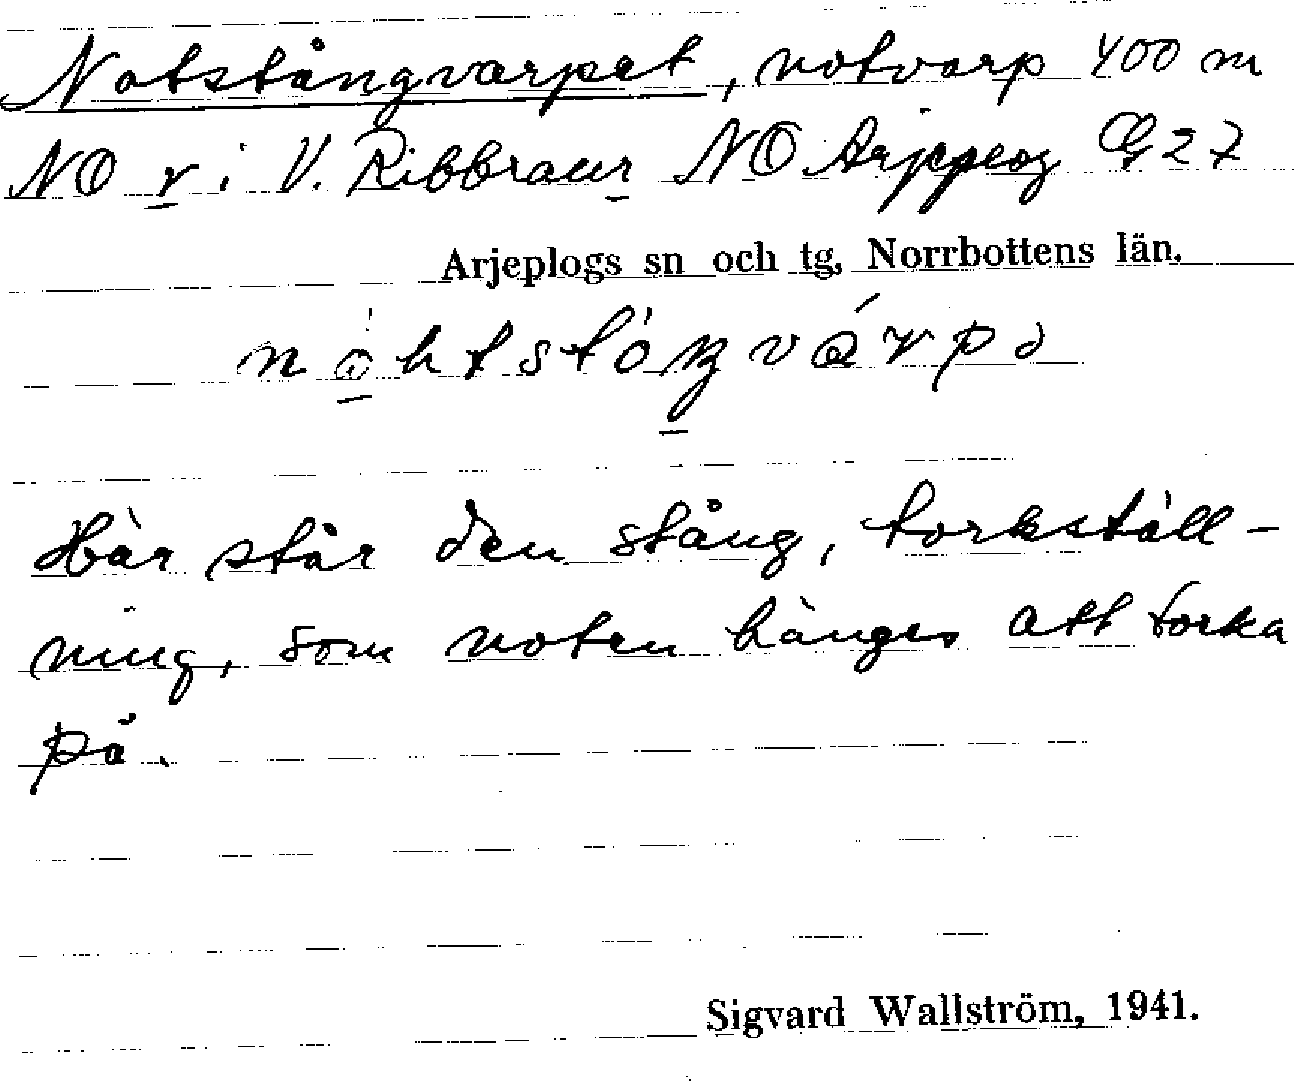 Notstångvarpet, notvarp 400 m
NO r i V. Ribbraur NO Arjeplog G 27
Arjeplogs sn och tg, Norrbottens län.
Här står den stång, torkställ-
ning, som noten hänges att torka
på.
Sigvard Wallström, 1941.